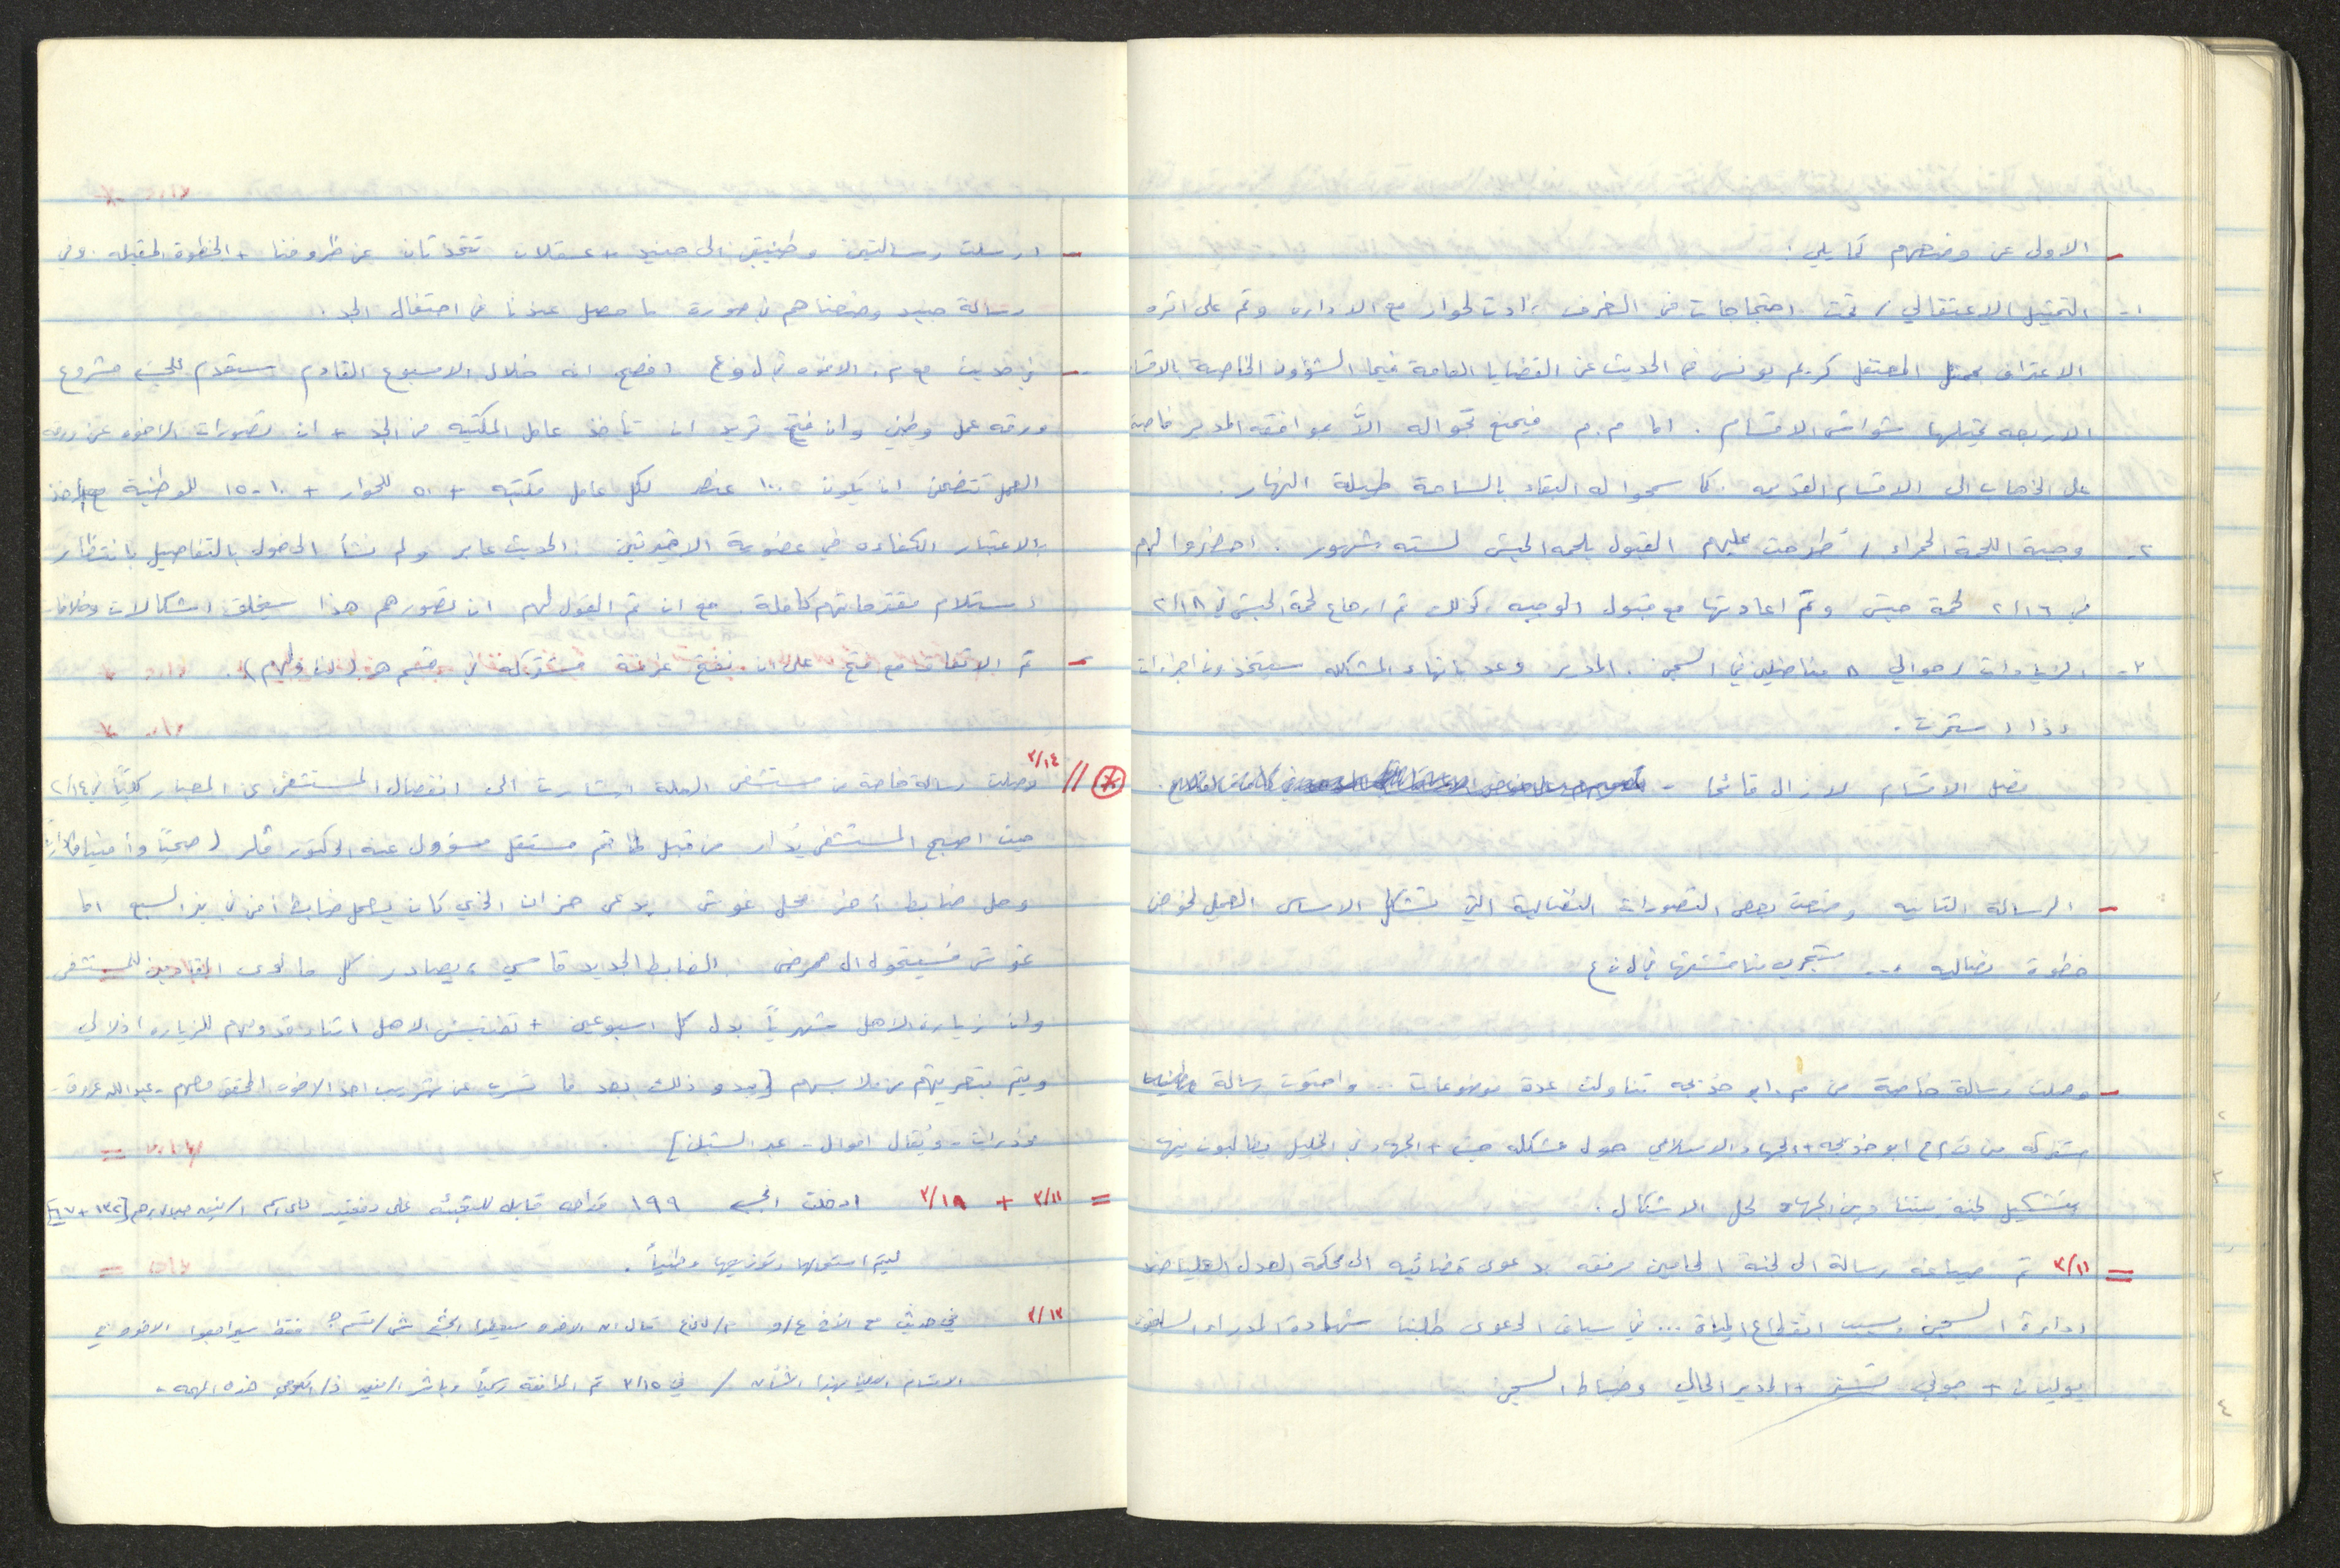 - الاولى عن وضعهم كما يلي:
١- التمثيل الاعتقالي / تمت احتجاجات من الغرف زادت الحوار مع الادارة وتم على اثره
الاعتراف بممثل المعتقل كريم يونس في الحديث عن القضايا العامة فيما الشؤون الخاصة بالاقسام
الاربعة يمثلها شواش الاقسام. اما م.م فيمنع تجواله الا بموافقة المدير خاصة
على الذهاب الى الاقسام القديمة. كما سمحوا له البقاء بالساحة طيلة النهار.
٢- وجبة اللحمة الحمراء / طرحت عليهم القبول بلحمة الحبش لستة شهور. احضروا لهم
في ٢/١٦ لحمة حبش وتم اعادتها مع قبول الوجبه. كذلك تم ارجاع لحمة الحبش في ٢/١٨
٣- الزيادات / حوالي ٨ مناضلين في السجن. المدير وعد بانهاء المشكلة ستتخذ ون اجراءات
اذا استمرت.
فصل الاقسام لا زال قائما -
- الرسالة الثانية وضعت بعض التصورات النضالية التي تشكل الاساس العملي لخوض
خطوة نضالية ... ستجري مناقشتها في ل ن ع
- وصلت رسالة خاصة من م. ابو خديجه تناولت عدة موضوعات .. واحتوت رسالة
مشتركه من ابو خديجه + الجهاد الاسلامي حول مشكلة حبش + الجهاد في الخليل يطالبون فيها
بتشكيل لجنة بيننا وبين الجهاد لحل الاشكال.
= ٣/١١ تم صياغة رسالة الى لجنة المحامين مرفقه بدعوى قضائيه الى محكمة العدل العليا ضد
ادارة السجن بسبب انقطاع المياة ... في سياق الدعوى طلبنا شهادة المدراء السابقون
يوليان + جولي + المدير الحالي وضباط السجن
- ارسلت رسالتين وطنيتين الى جنيد + عسقلان تتحدثان عن ظروفنا + الخطوة المقبلة. وفي
رسالة جنيد وضعناهم في صورة ما حصل عندنا في احتفال الجد.
- في حديث مع م. الاخوه في ل و ع افصح انه خلال الاسبوع القادم ستقدم للجنة مشروع
ورقه عمل وطني وان فتح تريد ان تأخذ عامل المكتبه من الجد + ان تصورات الاخوه عن ورقه
العمل تتضمن ان يكون ١٠٠ عنصر لكل عامل مكتبه + ٥٠ للحوار + ١٠-١٥ للوطنية مع الاخذ
بالاعتبار الكفاءه في عضوية الاخيرتين. الحديث عابر ولم نشأ الدخول بالتفاصيل بانتظار
استلام مقترحاتهم كاملة. مع ان تم القول لهم ان تصورهم هذا سيخلق اشكالات وخلافات
- تم الاتفاق مع فتح على ان نفتح غرفة مشتركه في قسم هـ (لنا ولهم).
٣/١٤ وصلت رسالة خاصة من مستشفى الرملة اشارت الى انفصال المستشفى عن المعبار كليا في ٢/١٤
حيث اصبح المستشفى يدار من قبل طاقم مستقل مسؤول عنه الدكتور (صحيا وأمنيا واداريا)
وحل ضابط أخر محل غوش يدعى حزان الذي كان يعمل ضابط أمن في بئر السبع اما
غوش فسيتحول الى ممرض. الضابط الجديد قاسي، يصادر كل ما لدى القادمين للمستشفى
وان زيارة الاهل شهرياً بدل كل اسبوعين + تفتيش الاهل اثناء قدومهم للزيارة اذلالي
ويتم بتعريتهم من ملابسهم [يبدو ذلك بعد ما تسرب عن تهريب احد الاخوه المحقق معهم - عبدالله
مخدرات - ويقال اموال - عبر الشبك]
= ٣/١١ + ٣/١٨ ادخلت الجـ ١٩٩ قداحه قابله للتعبئه على دفعتين [١٣٢+٦٧]
ليتم استعمالها وتوزيعها وطنياً.
٣/١٣ في حديث مع الاخ ع/و قال ان الاخوه فقط سيراجعوا الاخوه في
الاقسام بهذا الشأن / في ٣/١٥ تم الموافقة رسمياً وباشر هذه المهمه.